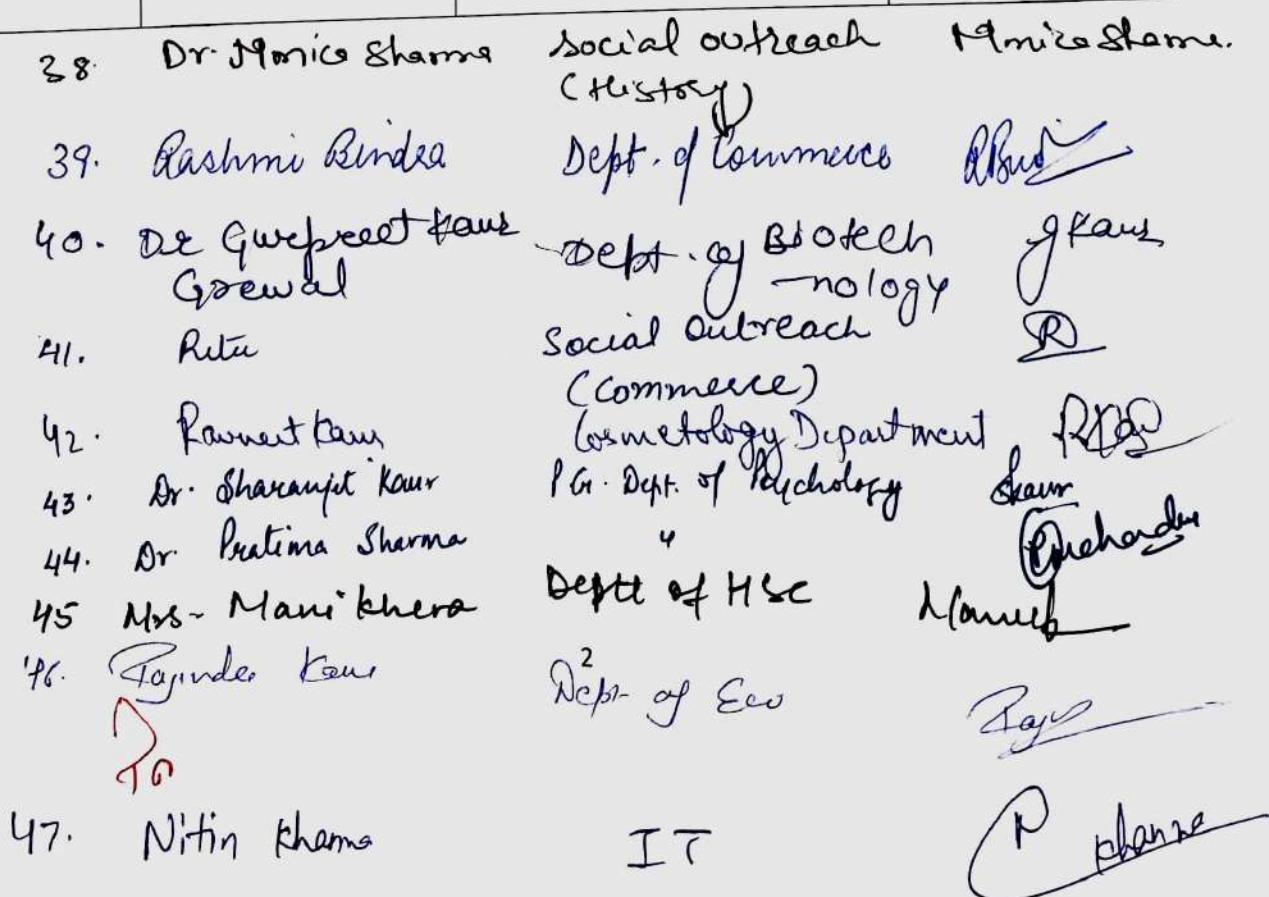 38. Dr. Monica Sharma Social outreach Monica Sharma.
(History)
39. Rashmi Bindra Dept. of Commerce
40. Dr Gurpreet Kaur Dept. of Biotech gkaur
Grewal -nology
41. Ritu Social Outreach R
(Commerce)
42. Ravneet Kaur Cosmetology Department
43. Dr. Sharanjit Kaur P.G. Dept. of Psychology Skaur
44. Dr. Pratima Sharma "
45 Mrs- Mani Khera Deptt of HSC
46. Rajinder Kaur Dept of Eco
47. Nitin Khanna IT N Khanna